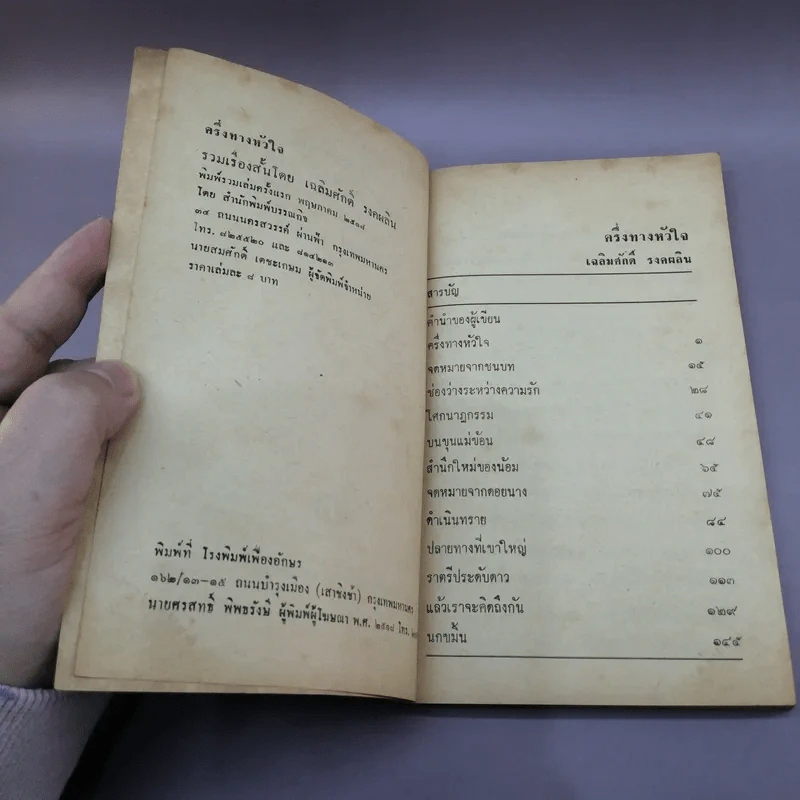 ครึ่งทางหัวใจ
รวมเรื่องสั้นโดย เฉลิมศักดิ์ รงคผลิน
พิมพ์รวมเล่มครั้งแรก พฤษภาคม ๒๕๑๘
โดย สำนักพิมพ์บรรณกิจ
๓๔ ถนนนครสวรรค์ ผ่านฟ้า กรุงเทพมหานคร
โทร. ๘๒๕๕๒๐ และ ๘๑๔๒๑๓
นายสมศักดิ์ เตชะเกษม ผู้จัดพิมพ์จำหน่าย
ราคาเล่มละ ๘ บาท
พิมพ์ที่ โรงพิมพ์เฟื่องอักษร
๑๖๒/๑๓-๑๕ ถนนบำรุงเมือง (เสาชิงช้า) กรุงเทพมหานคร
นายศรสทธิ์ พิพธรังษี ผู้พิมพ์ผู้โฆษณา พ.ศ. ๒๕๑๘ โทร.
ครึ่งทางหัวใจ
เฉลิมศักดิ์ รงคผลิน
สารบัญ
คำนำของผู้เขียน
ครึ่งทางหัวใจ ๑
จดหมายจากชนบท ๑๕
ช่องว่างระหว่างความรัก ๒๘
โศกนาฏกรรม ๔๑
บนขุนแม่ข้อน ๔๘
สำนึกใหม่ของน้อม ๖๕
จดหมายจากดอยนาง ๗๕
ดำเนินทราย ๘๔
ปลายทางที่เขาใหญ่ ๑๐๐
ราตรีประดับดาว ๑๑๓
แล้วเราจะคิดถึงกัน ๑๒๙
นกขมิ้น ๑๔๕